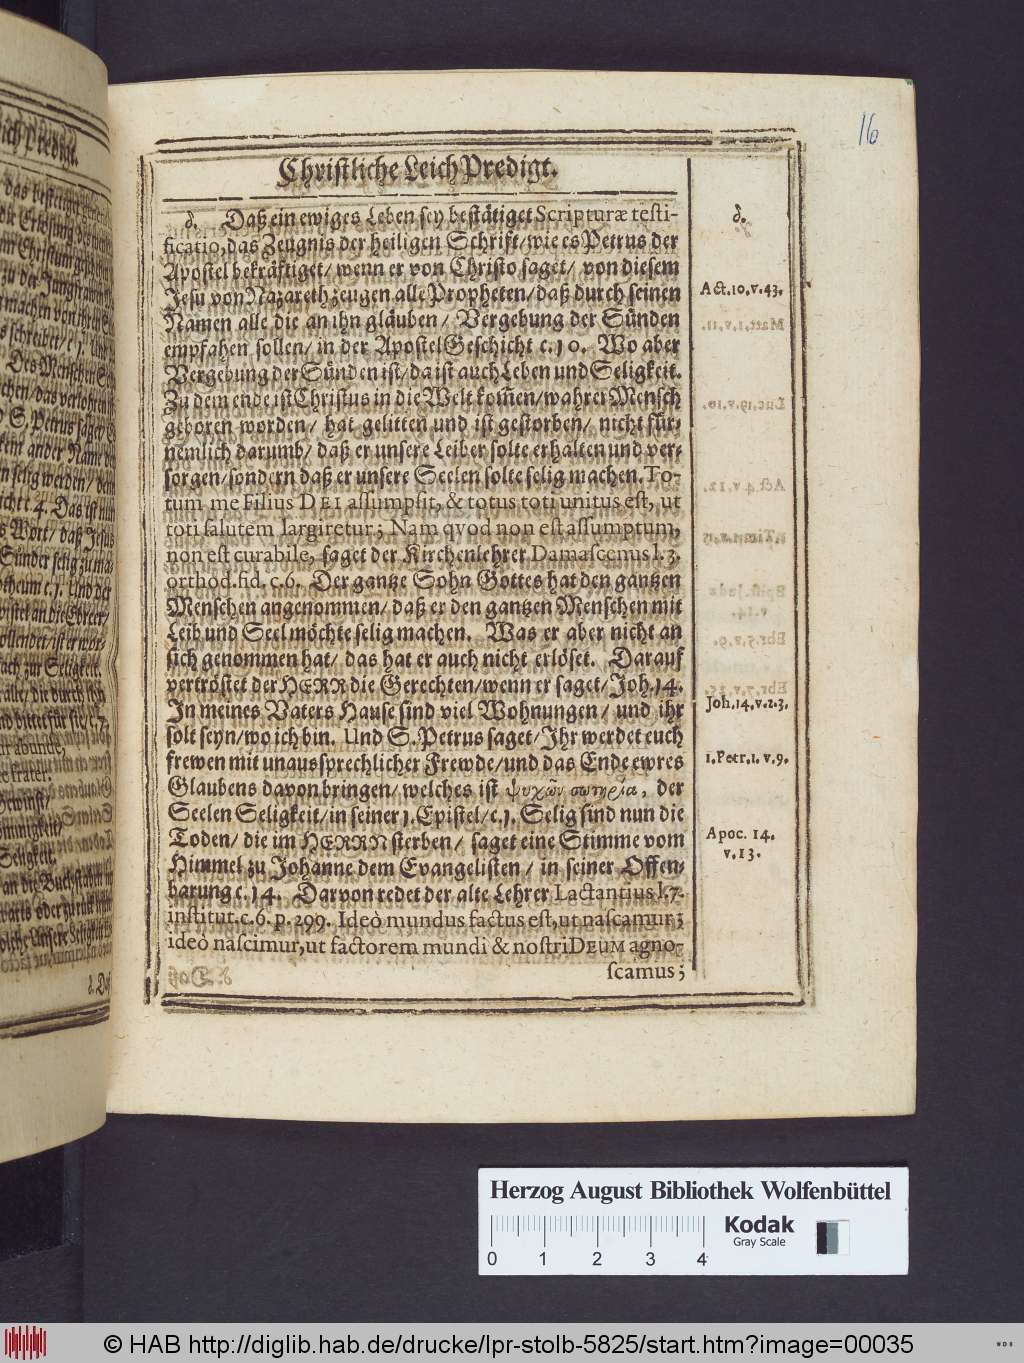 16
Christliche LeichPredigt.
d. Daß ein ewiges Leben sey bestätiget Scripturæ testi-
ficatio, das Zeugnis der heiligen Schrift/ wie es Petrus der
Apostel bekräftiget/ wenn er von Christo saget/ von diesem
Jesu von Nazareth zeugen alle Propheten/ daß durch seinen
Namen alle die an ihn gläuben/ Vergebung der Sünden
empfahen sollen/ in der ApostelGeschicht c.10. Wo aber
Vergebung der Sünden ist/ da ist auch Leben und Seligkeit.
Zu dem ende ist Christus in die Welt kom̃en/ wahrer Mensch
geboren worden/ hat gelitten und ist gestorben/ nicht für-
nemlich darumb/ daß er unsere Leiber solte erhalten und ver-
sorgen/ sondern daß er unsere Seelen solte selig machen. To-
tum me Filius DEI assumpsit, & totus toti unitus est, ut
toti salutem largiretur; Nam qvod non est assumptum,
non est curabile, saget der Kirchenlehrer Damascenus l.3.
orthod. fid. c.6. Der gantze Sohn Gottes hat den gantzen
Menschen angenommen/ daß er den gantzen Menschen mit
Leib und Seel möchte selig machen. Was er aber nicht an
sich genommen hat/ das hat er auch nicht erlöset. Darauf
vertröstet der HERR die Gerechten/ wenn er saget/ Joh.14.
In meines Vaters Hause sind viel Wohnungen/ und ihr
solt seyn/ wo ich bin. Und S. Petrus saget/ Ihr werdet euch
frewen mit unaussprechlicher Frewde/ und das Ende ewres
Glaubens davon bringen/ welches ist ψυχῶν σωτηρία, der
Seelen Seligkeit/ in seiner 1. Epistel/ c.1. Selig sind nun die
Toden/ die im HERRN sterben/ saget eine Stimme vom
Himmel zu Johanne dem Evangelisten/ in seiner Offen-
barung c.14. Darvon redet der alte Lehrer Lactantius l.7.
institut. c.6. p. 299. Ideò mundus factus est, ut nascamur;
ideò nascimur, ut factorem mundi & nostri DEUM agno-
scamus;
d.
Act.10.v.43.
Joh.14.v.2.3.
1.Petr.1.v.9.
Apoc. 14.
v.13.
Herzog August Bibliothek Wolfenbüttel
Kodak
Gray Scale
0 1 2 3 4
© HAB http://diglib.hab.de/drucke/lpr-stolb-5825/start.htm?image=00035